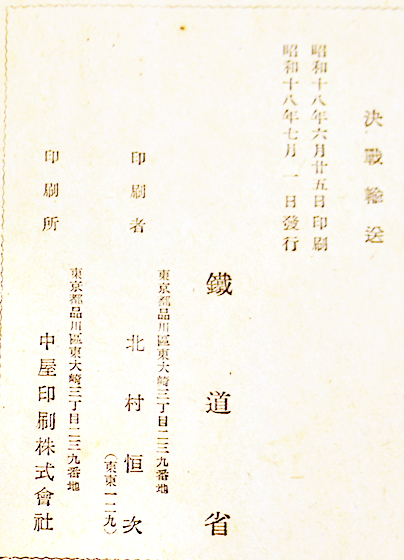 決戰輸送
昭和十八年六月廿五日印刷
昭和十八年七月一日發行
鐵道省
東京都品川區東大崎三丁目二三九番地
印刷者 北村恒次
(東東一二九)
東京都品川區東大崎三丁目二三九番地
印刷所 中屋印刷株式會社